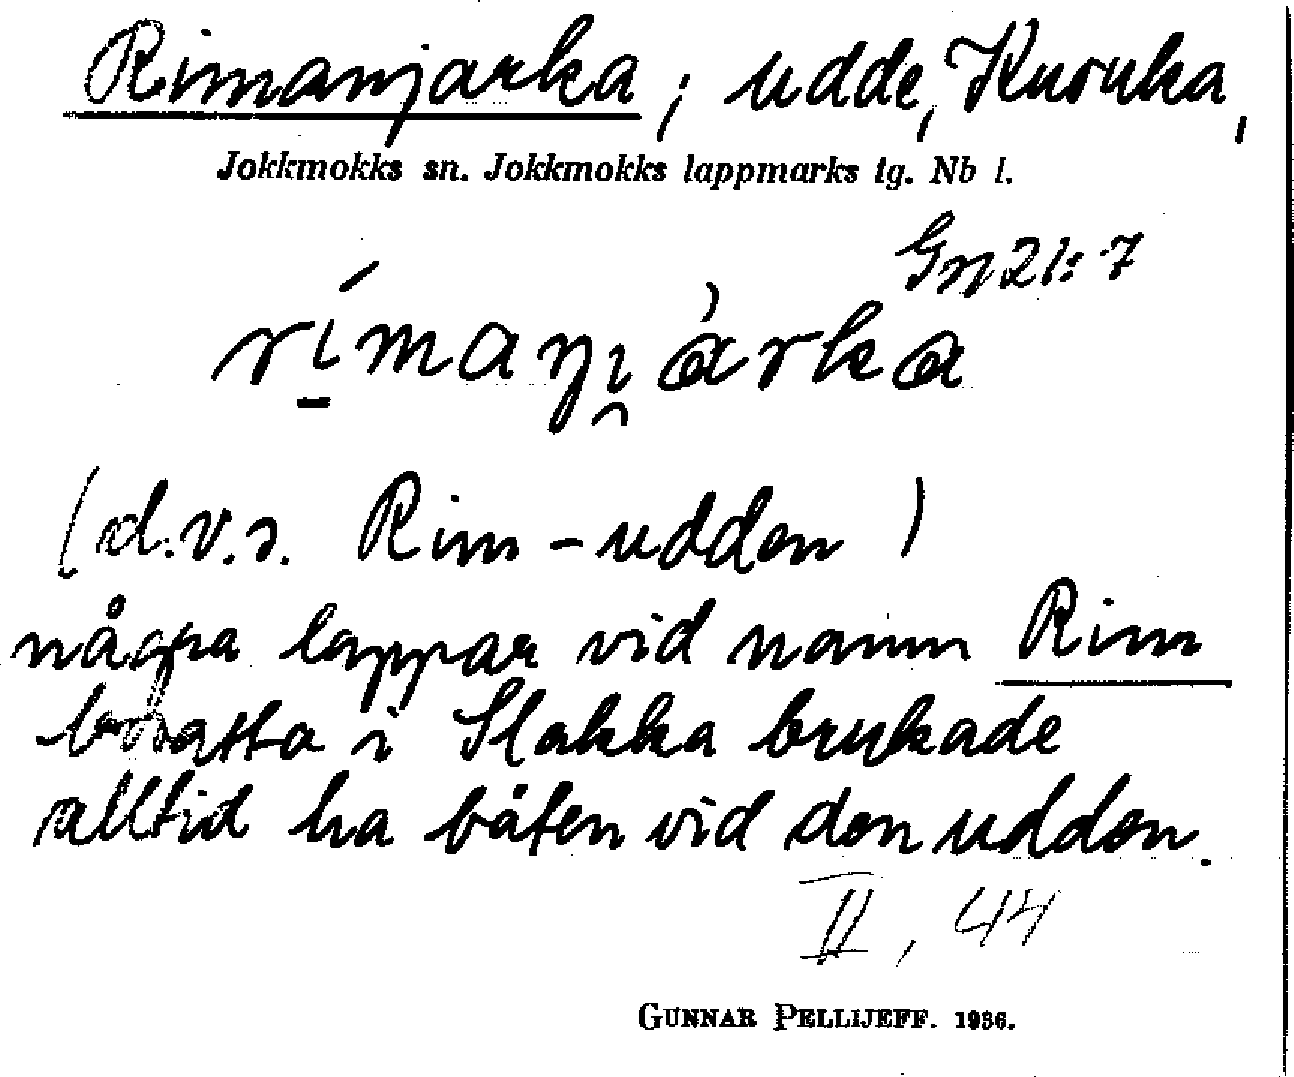 Rimanjarka, udde, Kuouka,
Jokkmokks sn. Jokkmokks lappmarks tg. Nb l.
Gn 21:7
(d.v.s. Rim-udden)
några lappar vid namn Rim
bosatta i Slakka brukade
alltid ha båten vid den udden.
II, 44
GUNNAR PELLIJEFF. 1936.